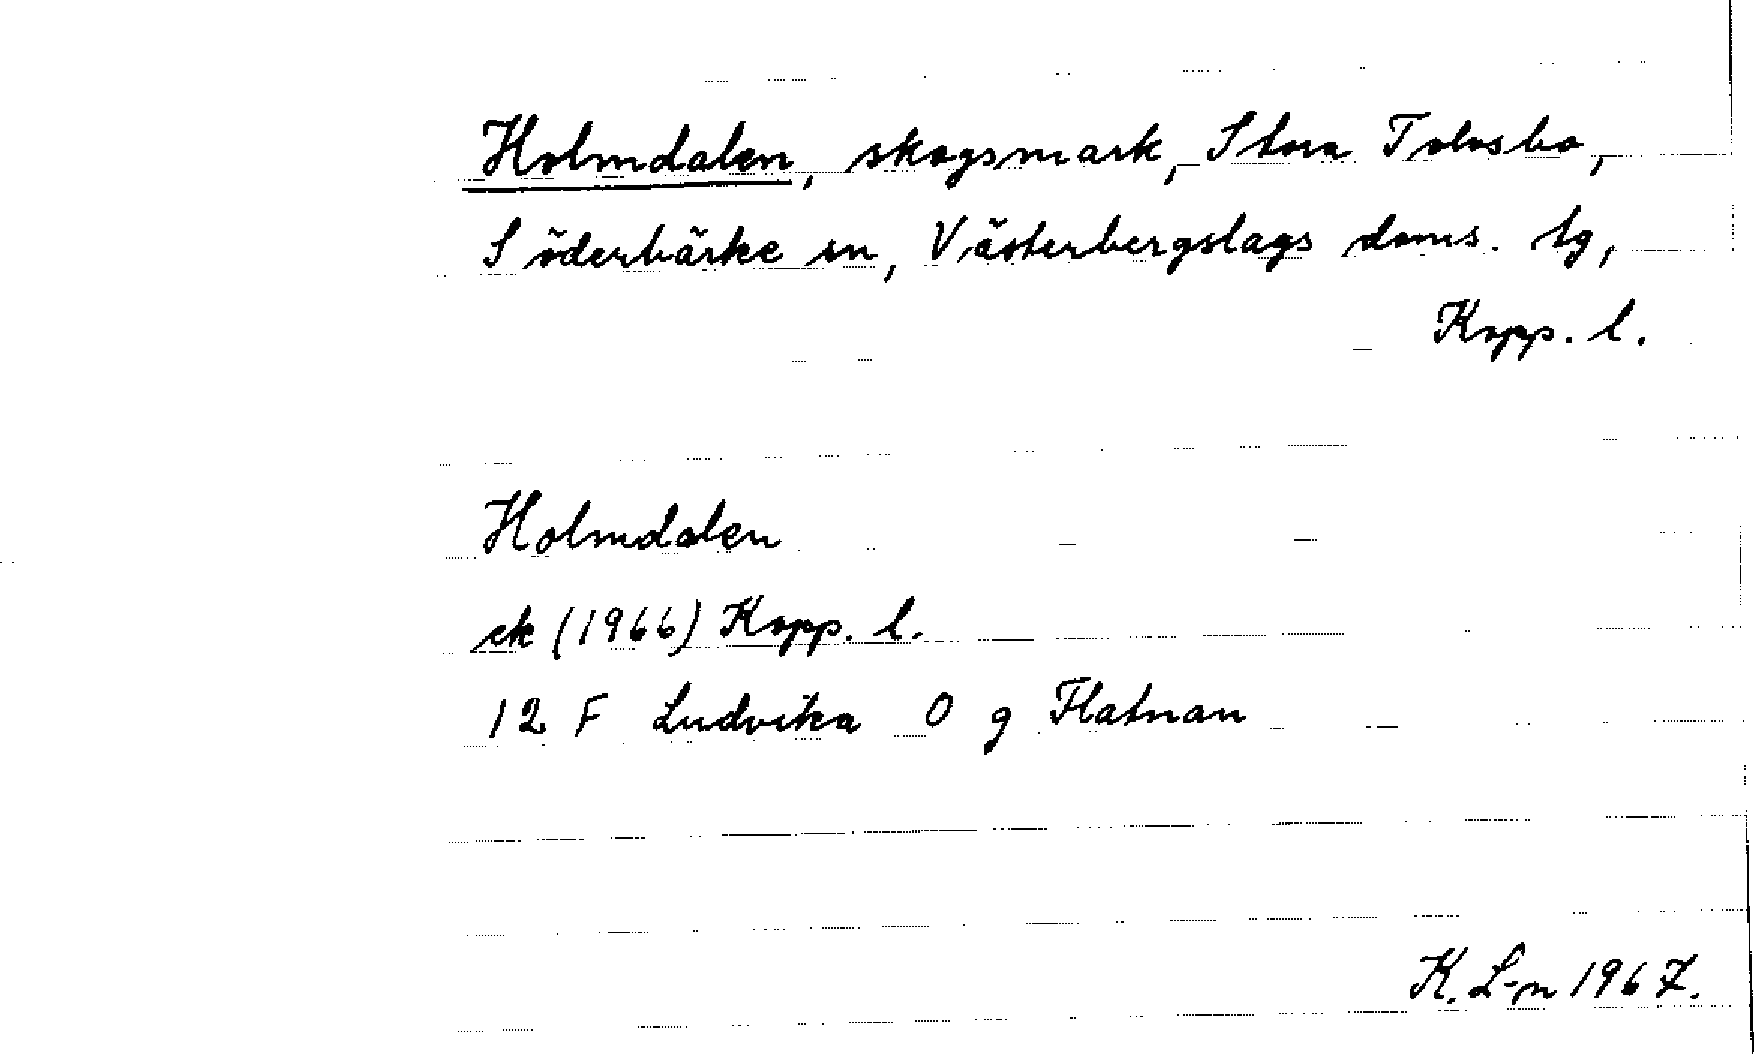 Holmdalen, skogsmark, Stora Tolvsbo,
Söderbärke sn, Västerbergslags doms. tg,
Kopp. l.
Holmdalen
ek (1966) Kopp. l.
12 F Ludvika 0 g Flatnan
K. L-n 1967.